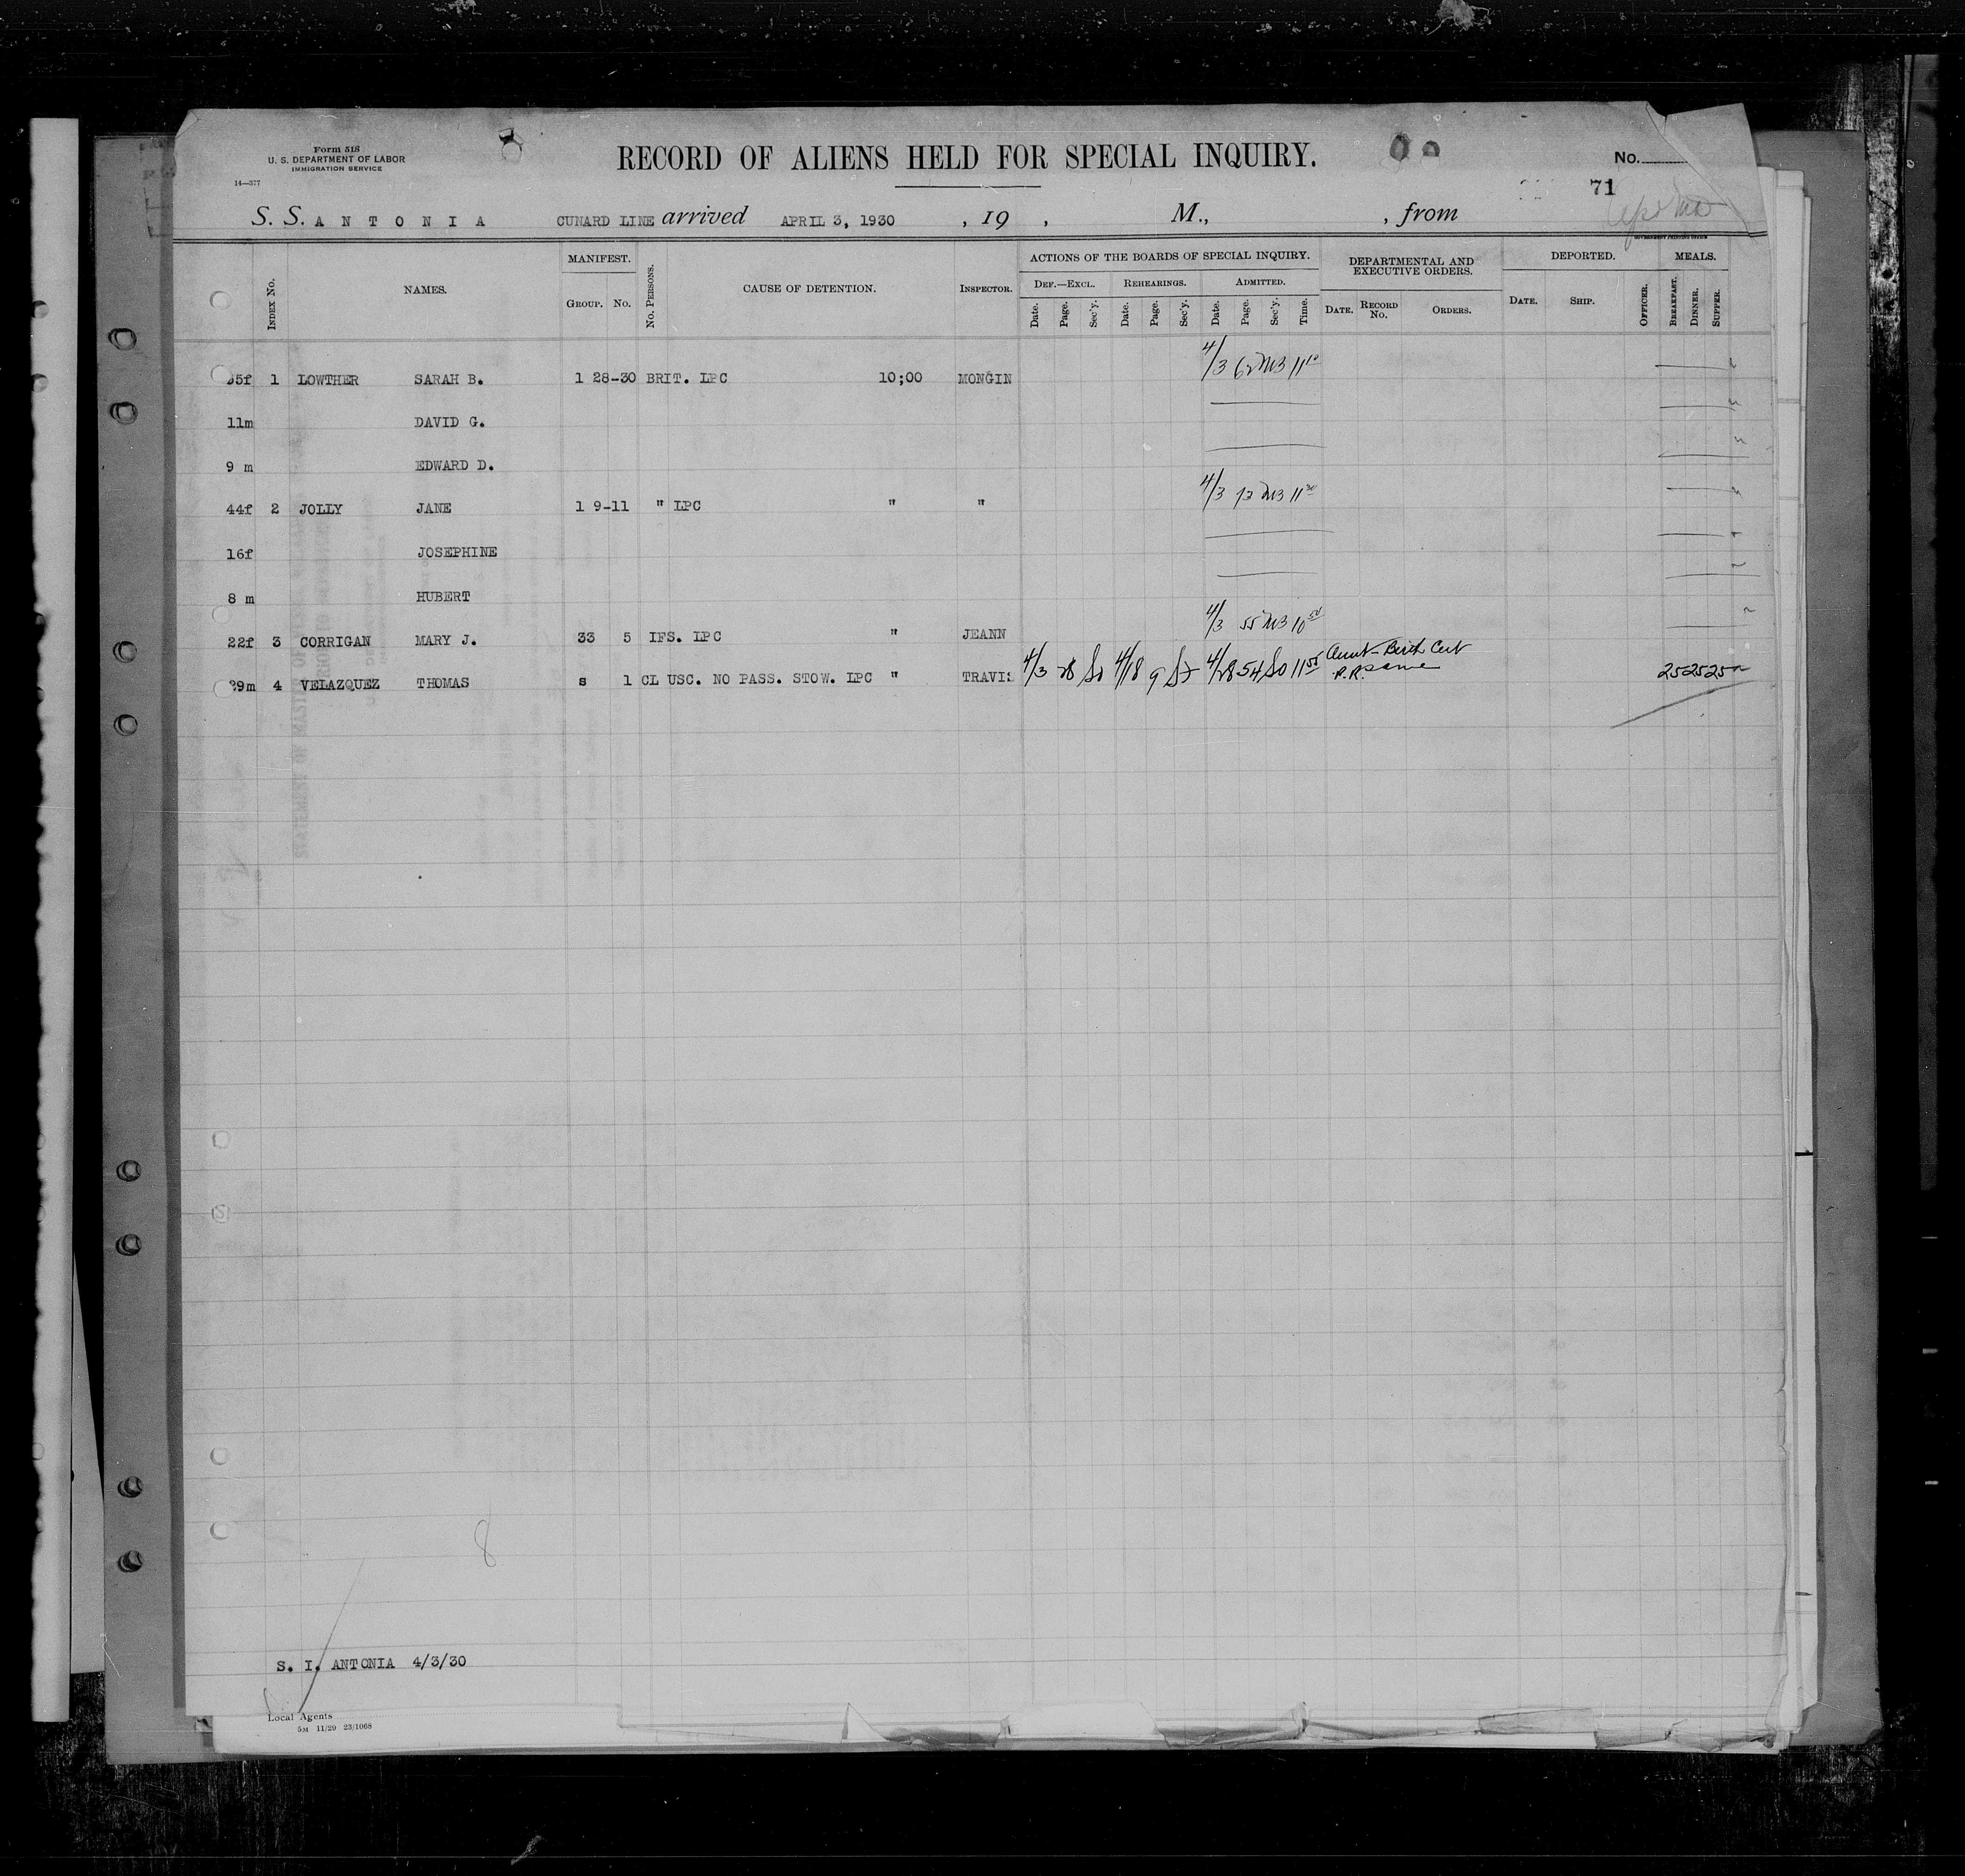 Form 518
U. S. DEPARTMENT OF LABOR
IMMIGRATION SERVICE
14—377
RECORD OF ALIENS HELD FOR SPECIAL INQUIRY.
No.
71
S. S. ANTONIA CUNARD LINE arrived APRIL 3, 1930 , 19 , M., , from
GOVERNMENT PRINTING OFFICE
INDEX No. NAMES. MANIFEST. GROUP. No. No. PERSONS. CAUSE OF DETENTION. INSPECTOR. ACTIONS OF THE BOARDS OF SPECIAL INQUIRY. DEPARTMENTAL AND EXECUTIVE ORDERS. DEPORTED. MEALS.
DEF.—EXCL. REHEARINGS. ADMITTED.
Date. Page. Sec'y. Date. Page. Sec'y. Date. Page. Sec'y. Time. DATE. RECORD No. ORDERS. DATE. SHIP. OFFICER. BREAKFAST. DINNER. SUPPER.
35f 1 LOWTHER SARAH B. 1 28-30 BRIT. LPC 10;00 MONGIN 4/3 11 10
11m DAVID G.
9 m EDWARD D.
44f 2 JOLLY JANE 1 9-11 " LPC " " 4/3 11 30
16f JOSEPHINE
8 m HUBERT
22f 3 CORRIGAN MARY J. 33 5 IFS. LPC " JEANN 4/3 55 10 50
29m 4 VELAZQUEZ THOMAS s 1 CL USC. NO PASS. STOW. LPC " TRAVIS 4/3 28 4/18 9 4/28 54 11 55 Aunt - Birth Cert 25 25 25
P.R. same
8
S. I. ANTONIA 4/3/30
Local Agents
5M 11/29 23/1068